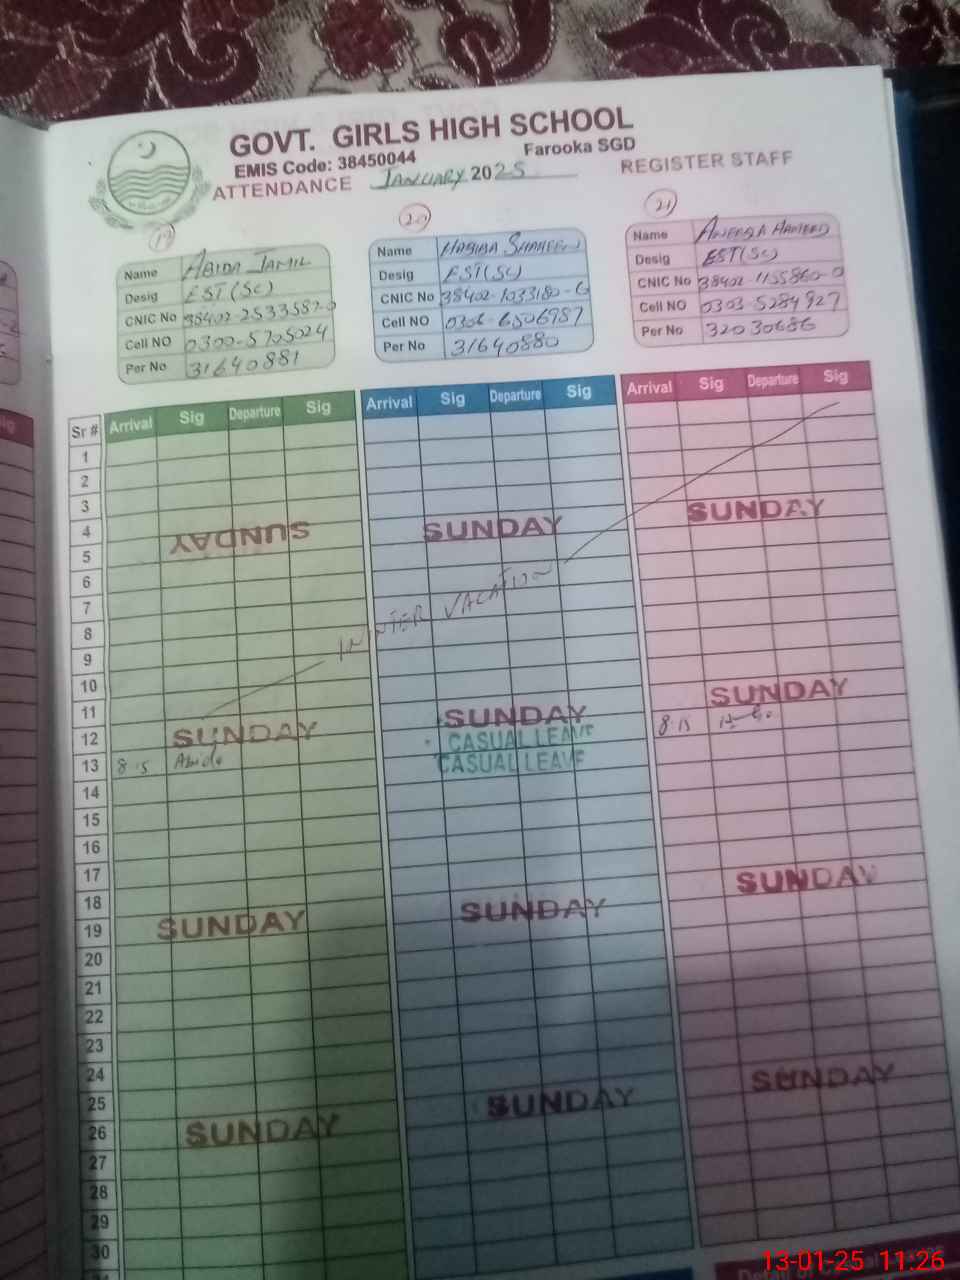 GOVT. GIRLS HIGH SCHOOL
EMIS Code: 38450044 Farooka SGD
ATTENDANCE JANUARY 2025 REGISTER STAFF
19
Name ABIDA JAMIL
Desig EST (SC)
CNIC No 38402-2533587-0
Cell NO 0300-5705024
Per No 31640881
20
Name HABIBA SHAHEEN
Desig EST (SC)
CNIC No 38402-1033180-6
Cell NO 0306-6506987
Per No 31640880
21
Name HAMEED
Desig EST (SC)
CNIC No 38402-1155860-0
Cell NO 0303-5284927
Per No 32030686
Sr # Arrival Sig Departure Sig Arrival Sig Departure Sig Arrival Sig Departure Sig
1
2
3
4 SUNDAY SUNDAY SUNDAY
5
6
7 WINTER VACATION
8
9
10
11 SUNDAY SUNDAY
12 SUNDAY CASUAL LEAVE 8.15
13 8.15 Abida CASUAL LEAVE
14
15
16
17
18 SUNDAY SUNDAY
19 SUNDAY
20
21
22
23
24
25 SUNDAY SUNDAY
26 SUNDAY
27
28
29
30
13-01-25 11:26